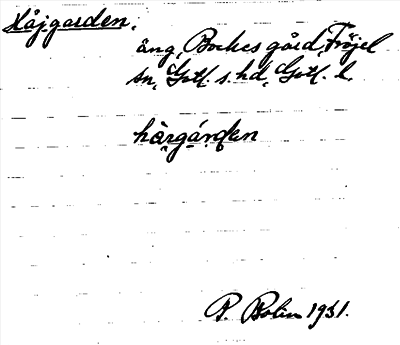 Håjgarden.
äng, Bockes gård, Fröjel
sn, Gotl. s. hd, Gotl. l.
hàrgárden
P. Bolin 1931.